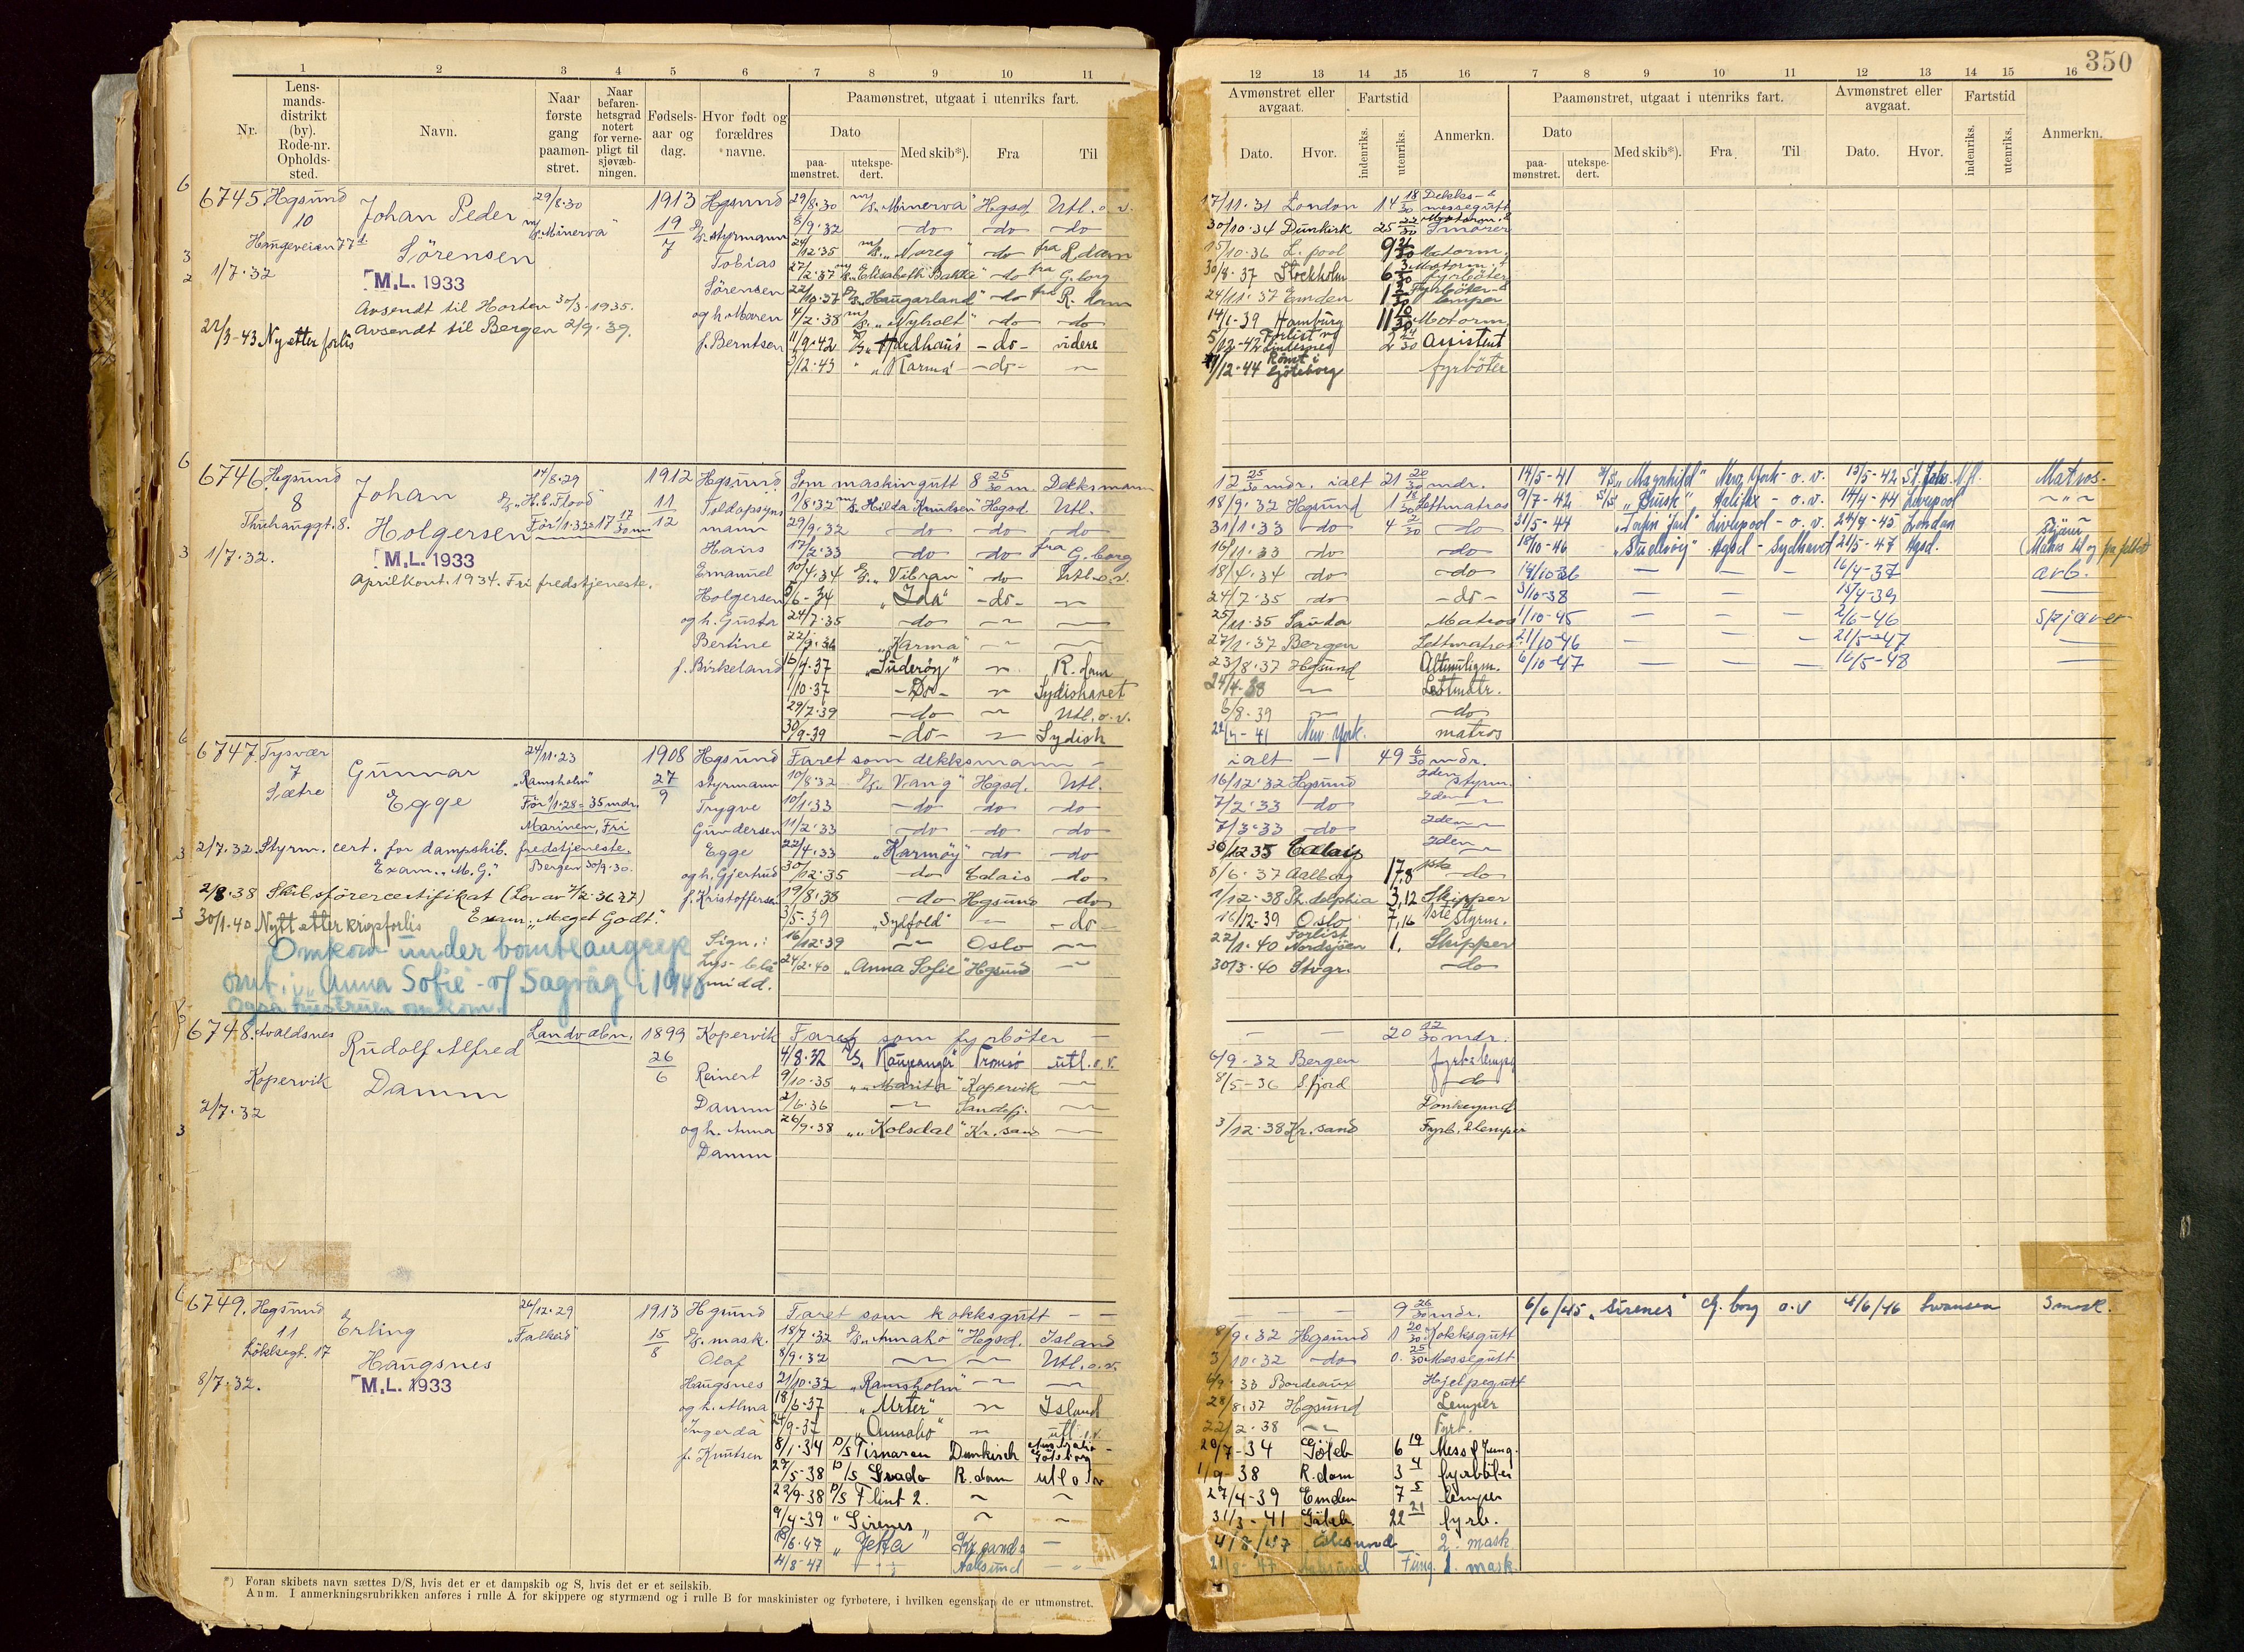 350
1 2 3 4 5 6 7 8 9 10 11
Nr.
Lens-
mands-
distrikt
(by).
Rode-nr.
Opholds-
sted.
Navn.
Naar
første
gang
paamøn-
stret.
Naar
befaren-
hetsgrad
notert
for verne-
pligt til
sjøvæb-
ningen.
Fødsels-
aar og
dag.
Hvor født og
forældres
navne.
Paamønstret, utgaat i utenriks fart.
Dato
paa-
mønstret.
utekspe-
dert.
Med skib*).
Fra
Til
6745 Hgsund
10
Haugeveien 77
1/7.32
Johan Peder
Sörensen
M.L. 1933
Avsendt til Horten 30/3.1935.
Avsendt til Bergen 2/9.39.
22/3-43 Ny etter forlis
29/8.30
m/s. Minerva"
1913
19
7
Hgsund
styrmann
Tobias
Sörensen
og h. Maren
f. Berntsen
29/8.30 m/s. Minerva" Hgsd. Utl. o. v.
8/9.32 do do do
24/12.35 m/s. "Noreg" do fra R.dam
27/2.37 m/s. "Elisabeth Bakke" do fra G.borg
22/10.37 D/s. "Haugarland" do fra R.dam
4/2.38 m/s. "Nyholt" do do
11/9.42 D/s. "Hardhaus" -do- videre
2/12.43 " "Karma" -do-
6746 Hgsund
8
Thuhauggt. 8.
1/7.32.
Johan
Holgersen
M.L. 1933
April kont. 1934. Fri fredstjeneste.
14/8.29
D/s. "H.C. Flood"
För 1/1.32= 17 17/30 m.
1912
11
12
Hgsund
Toldopsyns
mann
Hans
Emanuel
Holgersen
og h. Gusta
Bertine
f. Birkeland
Som maskingutt 8 25/30 m. Dekksmann
1/8.32 m/s. Hilda Knudsen" Hgsd. Utl.
29/9.32 do do do
17/2.33 do do fra G.borg
10/4.34 D/s. "Vibran" do Utl. o. v.
5/6-34 "Ida" -do-
24/7.35 do
22/9.36 "Karma"
16/4.37 "Suderöy" R.dam
1/10.37 -Do- Sydishavet
29/7.39 -do- Utl. o. v.
30/9.39 -do- Sydish
6747 Tysvær
7
Sætre
Gunnar
Egge
24/11.23
"Ramsholm"
För 1/1.28= 35 mdr.
Marinen, Fri
fredstjeneste.
Bergen 30/9.30.
2/7.32. Styrm. cert. for dampskib.
Exam. "M.G."
2/8.38 Skibsförercertifikat (Lov av 7/2.36 27)
Exam. "Meget Godt."
30/1.40 Nytt etter krigsforlis
Omkom under bombeangrep
omb. i "Anna Sofie" v/ Sagvåg i 1940
Også hustruen omkom.
1908
27
9
Hgsund
styrmann
Trygve
Gundersen
Egge
og h. Gjertrud
f. Kristoffersen
Sign.:
Lys-blå
midd.
Faret som dekksmann
10/8.32 D/s. "Vang" Hgsd. Utl.
10/1.33 do do do
11/2.33 do do do
22/4.33 "Karmöy" do do
30/12.35 do Calais do
19/8.38 do Hgsund do
3/5.39 "Sylfold" -do-
16/12.39 Oslo
24/2.40 "Anna Sofie" Hgsund
6748. Avaldsnes
Kopervik
2/7.32
Rudolf Alfred
Damm
Landvæbn.
1899
26
6
Kopervik
Reinert
Damm
og h. Anna
Damm
Faret som fyrböter
4/8.32 D/s. Kaupanger" Tromsö utl. o. v.
9/10.35 " "Marita" Kopervik
2/6.36 Sandefj.
26/9.38 " "Kolsdal" Kr.sand
6749. Hgsund
11
Löklsegt. 17
8/7.32.
Erling
Haugsnes
M.L. 1933
26/12.29
"Falkeid"
1913
15
8
Hgsund
D/s. mask.
Olaf
Haugsnes
og h. Alma
Ingerda
f. Knutsen
Faret som kokksgutt
18/7.32 D/s. "Annaho" Hgsd. Island
8/9.32 Utl. o. v.
21/10.32 "Ramsholm"
18/6.37 "Urter" Island
24/9-37 "Annaho" utl. o. v.
8/1.34 D/S Tisnaren Dunkirch Australia Göteborg
27/5-38 D/S Svada R.dam utl o v
22/9-38 D/S Flint 2.
9/4-39 " Sirenes
13/6.47 " Jetta" Kr.sand s.
4/8-47 Aalesund
*) Foran skibets navn sættes D/S, hvis det er et dampskib og S, hvis det er et seilskib.
Anm. I anmerkningsrubrikken anføres i rulle A for skippere og styrmænd og i rulle B for maskinister og fyrbøtere, i hvilken egenskap de er utmønstret.
12 13 14 15 16 7 8 9 10 11 12 13 14 15 16
Avmønstret eller
avgaat.
Dato.
Hvor.
Fartstid
indenriks.
utenriks.
Anmerkn.
Paamønstret, utgaat i utenriks fart.
Dato
paa-
mønstret.
utekspe-
dert.
Med skib*).
Fra
Til
Avmønstret eller
avgaat.
Dato.
Hvor.
Fartstid
indenriks.
utenriks.
Anmerkn.
17/11.31 London 14 18/30 Dekks- & messegutt
30/10.34 Dunkirk 25 22/30 Motorm. & Smörer
15/10.36 L.pool 9 21/30 Motorm.
30/8.37 Stockholm 6 3/30 Motorm. & fyrböter
24/11.37 Emden 1 2/30 Fyrböter & lemper
14/1-39 Hamburg 11 10/30 Motorm.
5/12-42 Forlist v/ Lindesnes 2 24/30 Assistent
17/12.44 Römt i Göteborg fyrböter
12 25/30 mdr. ialt 21 20/30 mdr.
18/9.32 Hgsund 1 18/30 Lettmatros
31/1.33 do 4 2/30 do
16/11.33 do do
18/4.34 do do
24/7.35 do -do-
25/11.35 Sauda Matros
27/1.37 Bergen Lettmatros
23/8.37 Hgsund Altmuligm.
24/4-38 Lettmatr.
6/8.39 do
22/4-41 New York. matros
14/5-41 "Magnhild" New York - o. v. 13/5-42 St. Johs N.fl. Matros.
9/7-42 "Busk" Halifax - o. v. 14/4-44 Liverpool
31/5-44 Liverpool - o. v. 24/7-45 London
18/10-46 "Suderöy" Hgsd - Sydhavet 21/5-47 Hgsd. Skjær (Matros til og fra feltet
19/10-36 16/4-37 arb.
3/10-38 15/4-39
1/10-45 2/6-46 Skjærer
21/10-46 21/5-47
6/10-47 16/5-48
ialt 49 6/30 mdr.
16/12.32 Hgsund 2den styrm.
7/2.33 do 2den
7/3.33 do 2den
30/12 35 Calais 2den
8/6.37 Aalborg 17,8 1ste do
1/12-38 Ph.delphia 3,12 Skipper
16/12.39 Oslo 7,16 1ste Styrm.
22/1.40 Forlist Nordsjöen 1, Skipper
30/3.40 Stvgr. do
20 12/30 mdr.
6/9-32 Bergen fyrb & lemper
8/5-36 S.fjord do
Donkeymd
3/12.38 Kr.sand Fyrb. & lemper
9 26/30 mdr.
8/9.32 Hgsund 1 20/30 Kokksgutt
3/10.32 do 0. 25/30 Messegutt
6/9.33 Bordeaux Hjelpegutt
28/8.37 Hgsund Lemper
22/2.38 Fyrb.
20/7-34 Göteb 6 19 Mess & Jung.
1/9-38 R.dam 3 4 fyrböter
27/4-39 Emden 7 5 lemper
31/3-41 Göteb. 22 21 fyrb.
4/8/47 Ålesund 2. mask
21/8-47 Aalesund Fung. 1. mask.
6/6/45 "Sirenes" G.borg o. v 4/6/46 Swansea 3 mask.